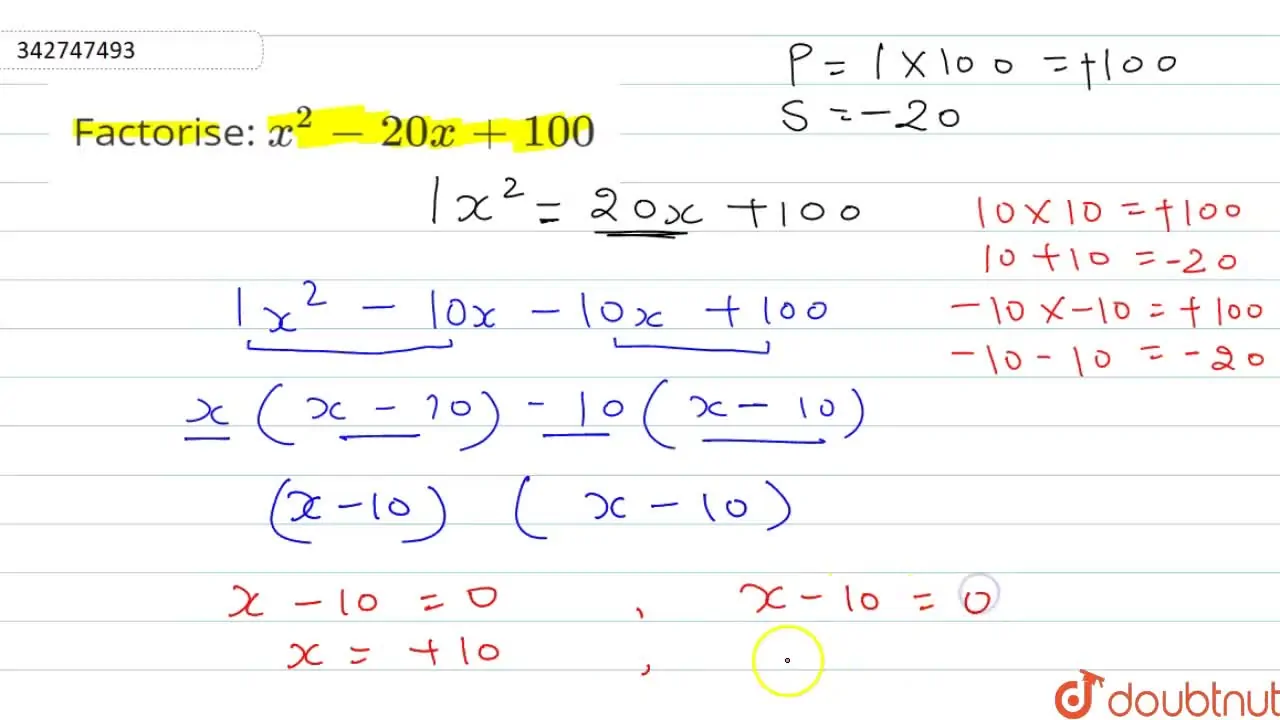 342747493
P = 1 × 100 = +100
S = -20
Factorise: x² − 20x + 100
1x² = 20x + 100
10 × 10 = +100
10 + 10 = -20
1x² - 10x - 10x + 100
-10 × -10 = +100
-10 - 10 = -20
x (x - 10) - 10 (x - 10)
(x - 10) (x - 10)
x - 10 = 0 , x - 10 = 0
x = +10 ,
doubtnut